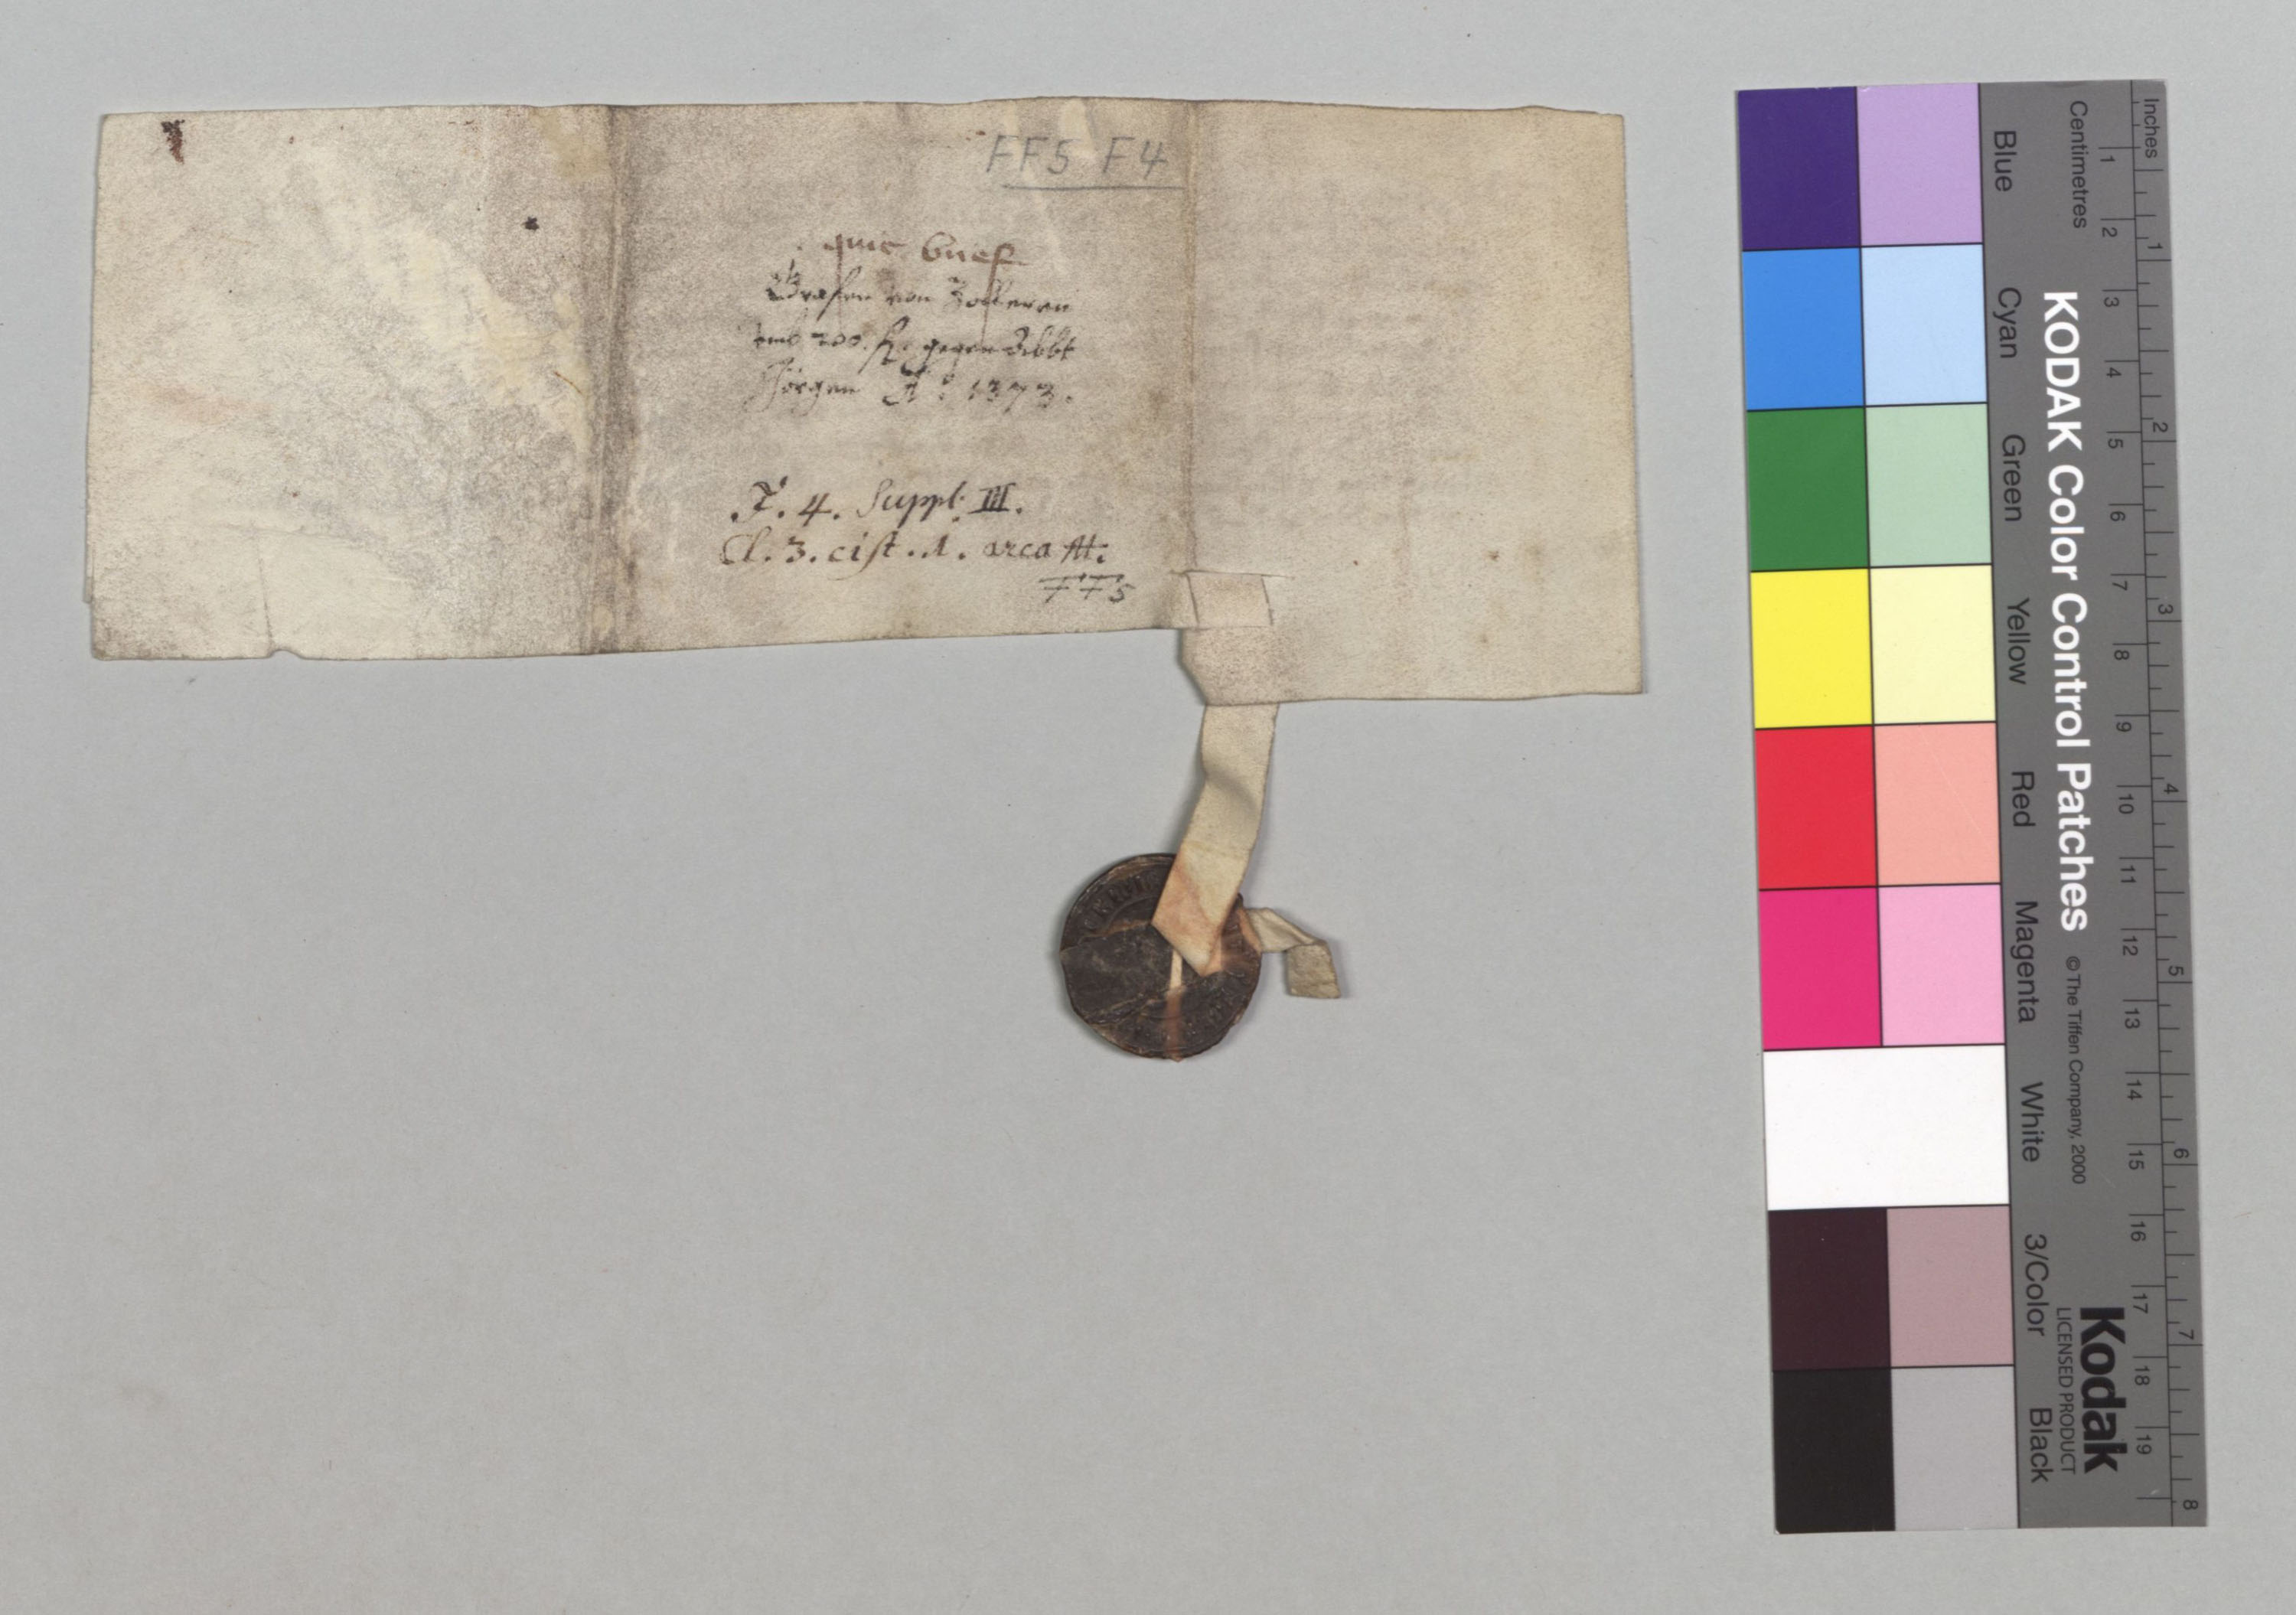 FF5 F4
quit brief
Grafen von Zolleren
umb 200. fl. gegen Abbt
Jörgen Aº: 1373.
F. 4. Suppl. III.
Cl. 3. cist. 1. arca M.
FF5
Inches
Centimetres
Blue
Cyan
Green
Yellow
Red
Magenta
White
3/Color
Black
KODAK Color Control Patches © The Tiffen Company, 2000
Kodak
LICENSED PRODUCT
1 2 3 4 5 6 7 8 9 10 11 12 13 14 15 16 17 18 19
1 2 3 4 5 6 7 8